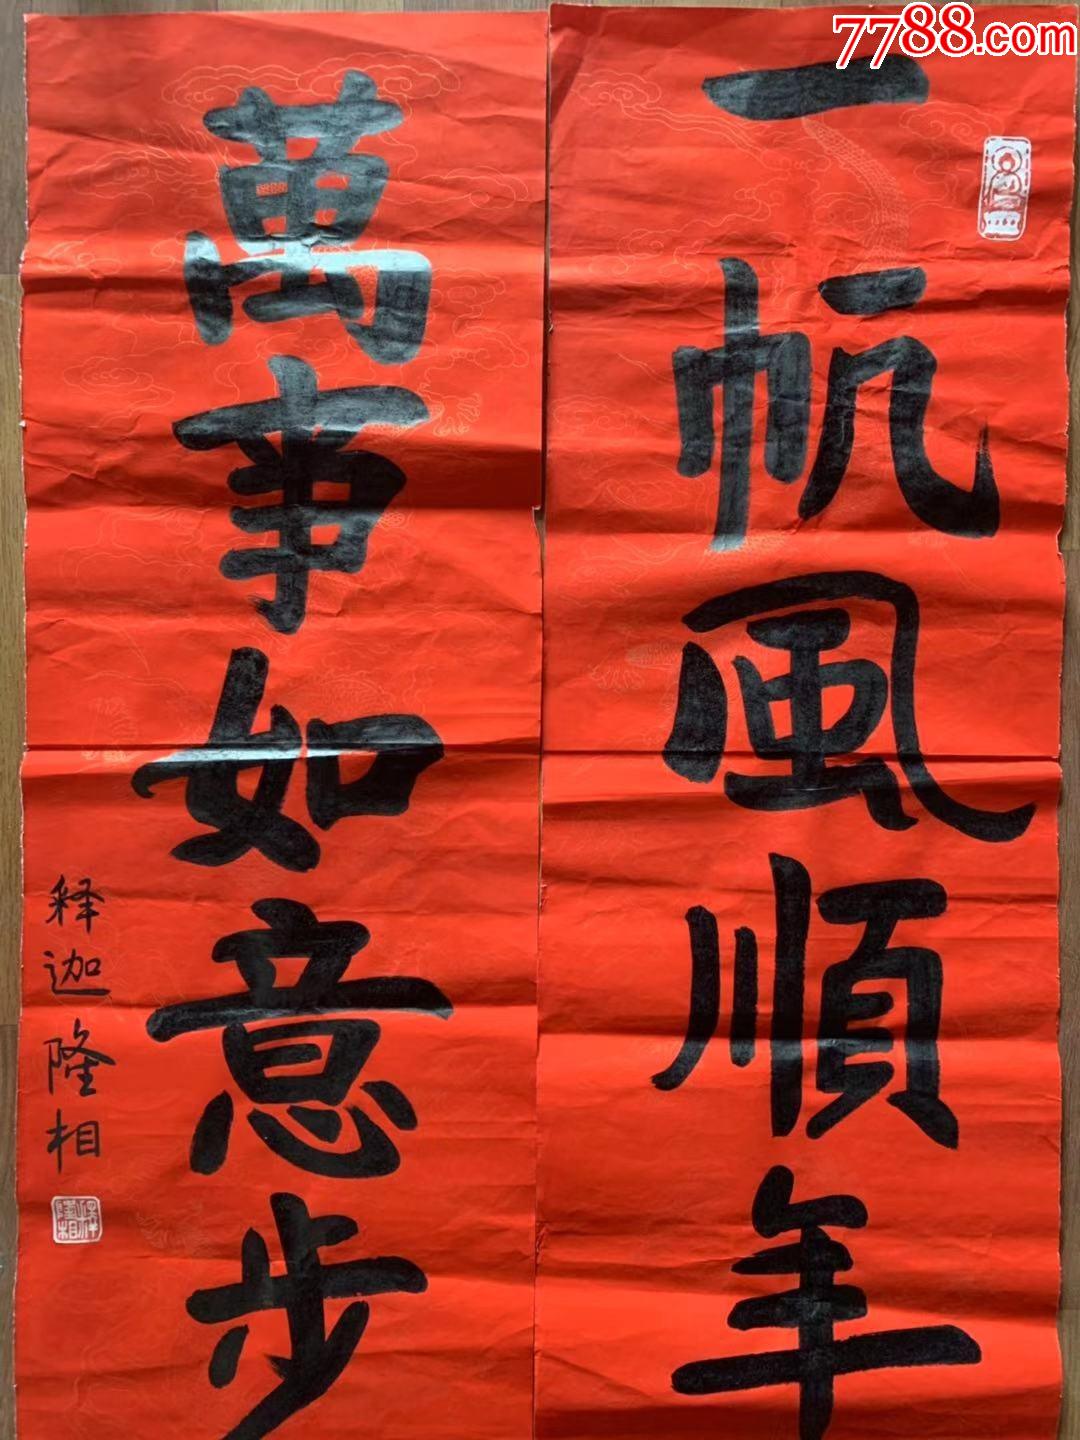 7788.com
一帆風順年
萬事如意步
释迦隆相